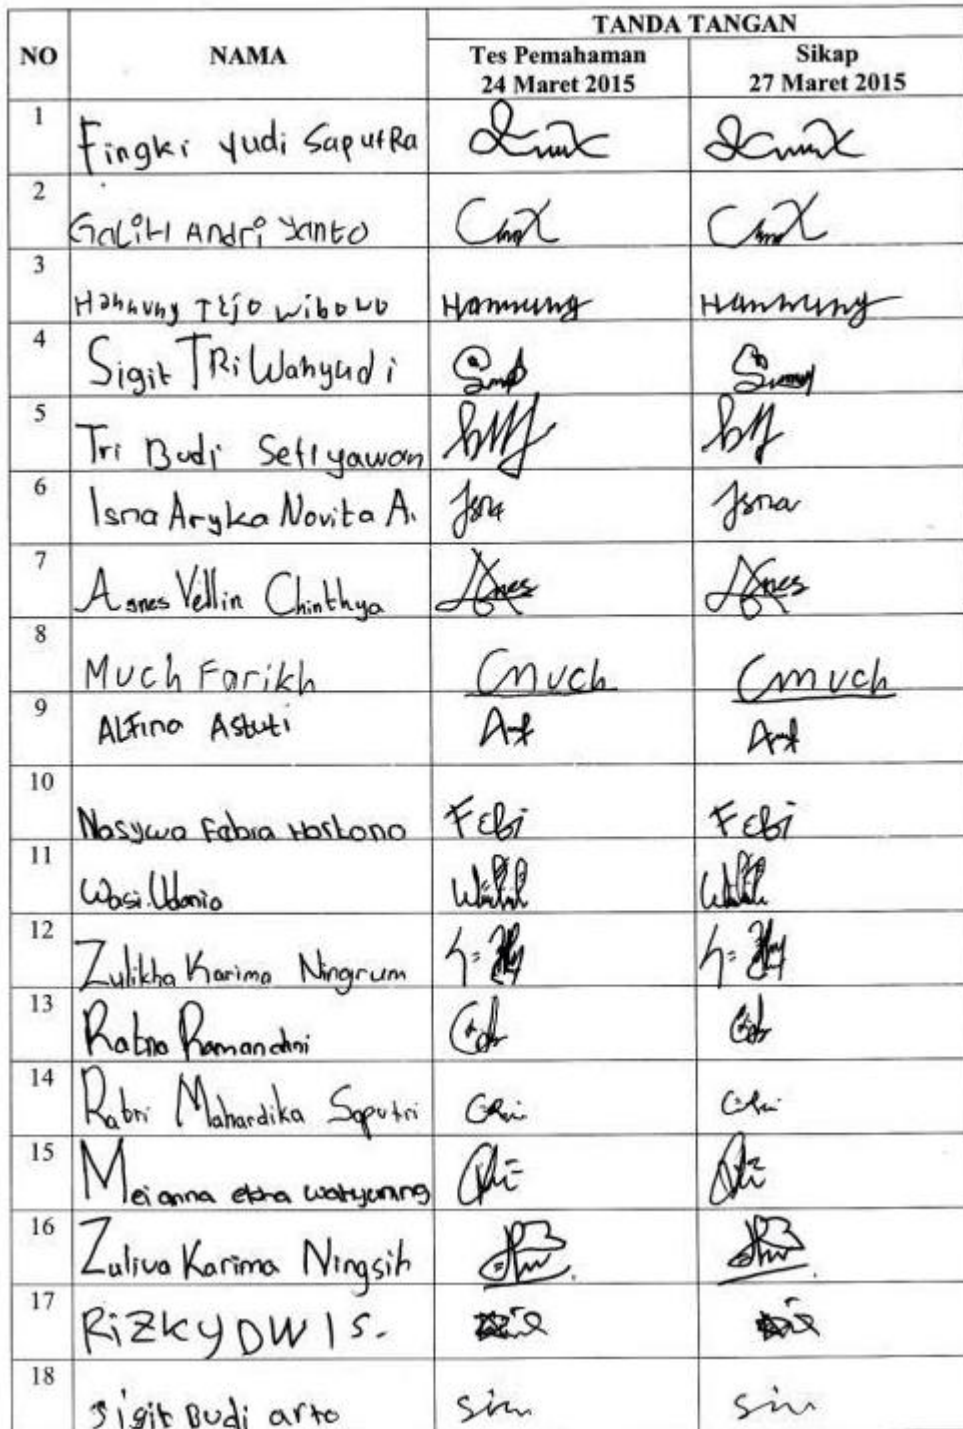 TANDA TANGAN
NO NAMA Tes Pemahaman Sikap
24 Maret 2015 27 Maret 2015
1 Fingki Yudi SaputRa
2 GaLiH Andri Yanto
3 Hannung Tejo wibowo Hannung Hannung
4 Sigit TRi Wahyudi
5 Tri Budi Setiyawan
6 Isna Aryka Novita A. Isna Isna
7 Agnes Vellin Chinthya Agnes Agnes
8 Much Farikh Cmuch Cmuch
9 ALFina Astuti
10 Nasywa Febia Hartono Febi Febi
11 Wasi Udania
12 Zulikha Karima Ningrum
13 Ratna Ramandhni
14 Ratri Mahardika Saputri
15 Meianna ekha wahyuning
16 Zuliva Karima Ningsih
17 RiZKY DWI S.
18 Sigit Budi arto